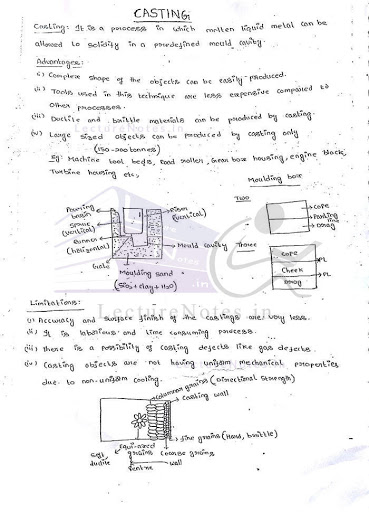 CASTING
Casting: It is a process in which molten liquid metal can be
allowed to solidify in a predefined mould cavity.
Advantages:
(i) Complex shape of the objects can be easily produced.
(ii) Tools used in this technique are less expensive compared to
other processes.
(iii) Ductile and brittle materials can be produced by casting.
(iv) Large sized objects can be produced by casting only
(150-200 tonnes)
Eg: Machine tool beds, Road roller, Gear box housing, engine block,
Turbine housing etc,
Moulding box
Two
Pouring basin
Sprue (vertical)
Runner (horizontal)
Gate
Riser (vertical)
Mould cavity
Moulding sand
(SiO2 + clay + H2O)
Cope
Parting line
Drag
Three
Cope
Cheek
Drag
PL
PL
LectureNotes.in
Limitations:
(i) Accuracy and surface finish of the castings are very less.
(ii) It is laborious and time consuming process.
(iii) There is a possibility of casting defects like gas defects.
(iv) Casting objects are not having uniform mechanical properties
due to non-uniform cooling.
columnar grains (Directional Strength)
Casting wall
fine grains (Hard, brittle)
Equi-axed grains
Coarse grains
Soft, ductile
centre
wall